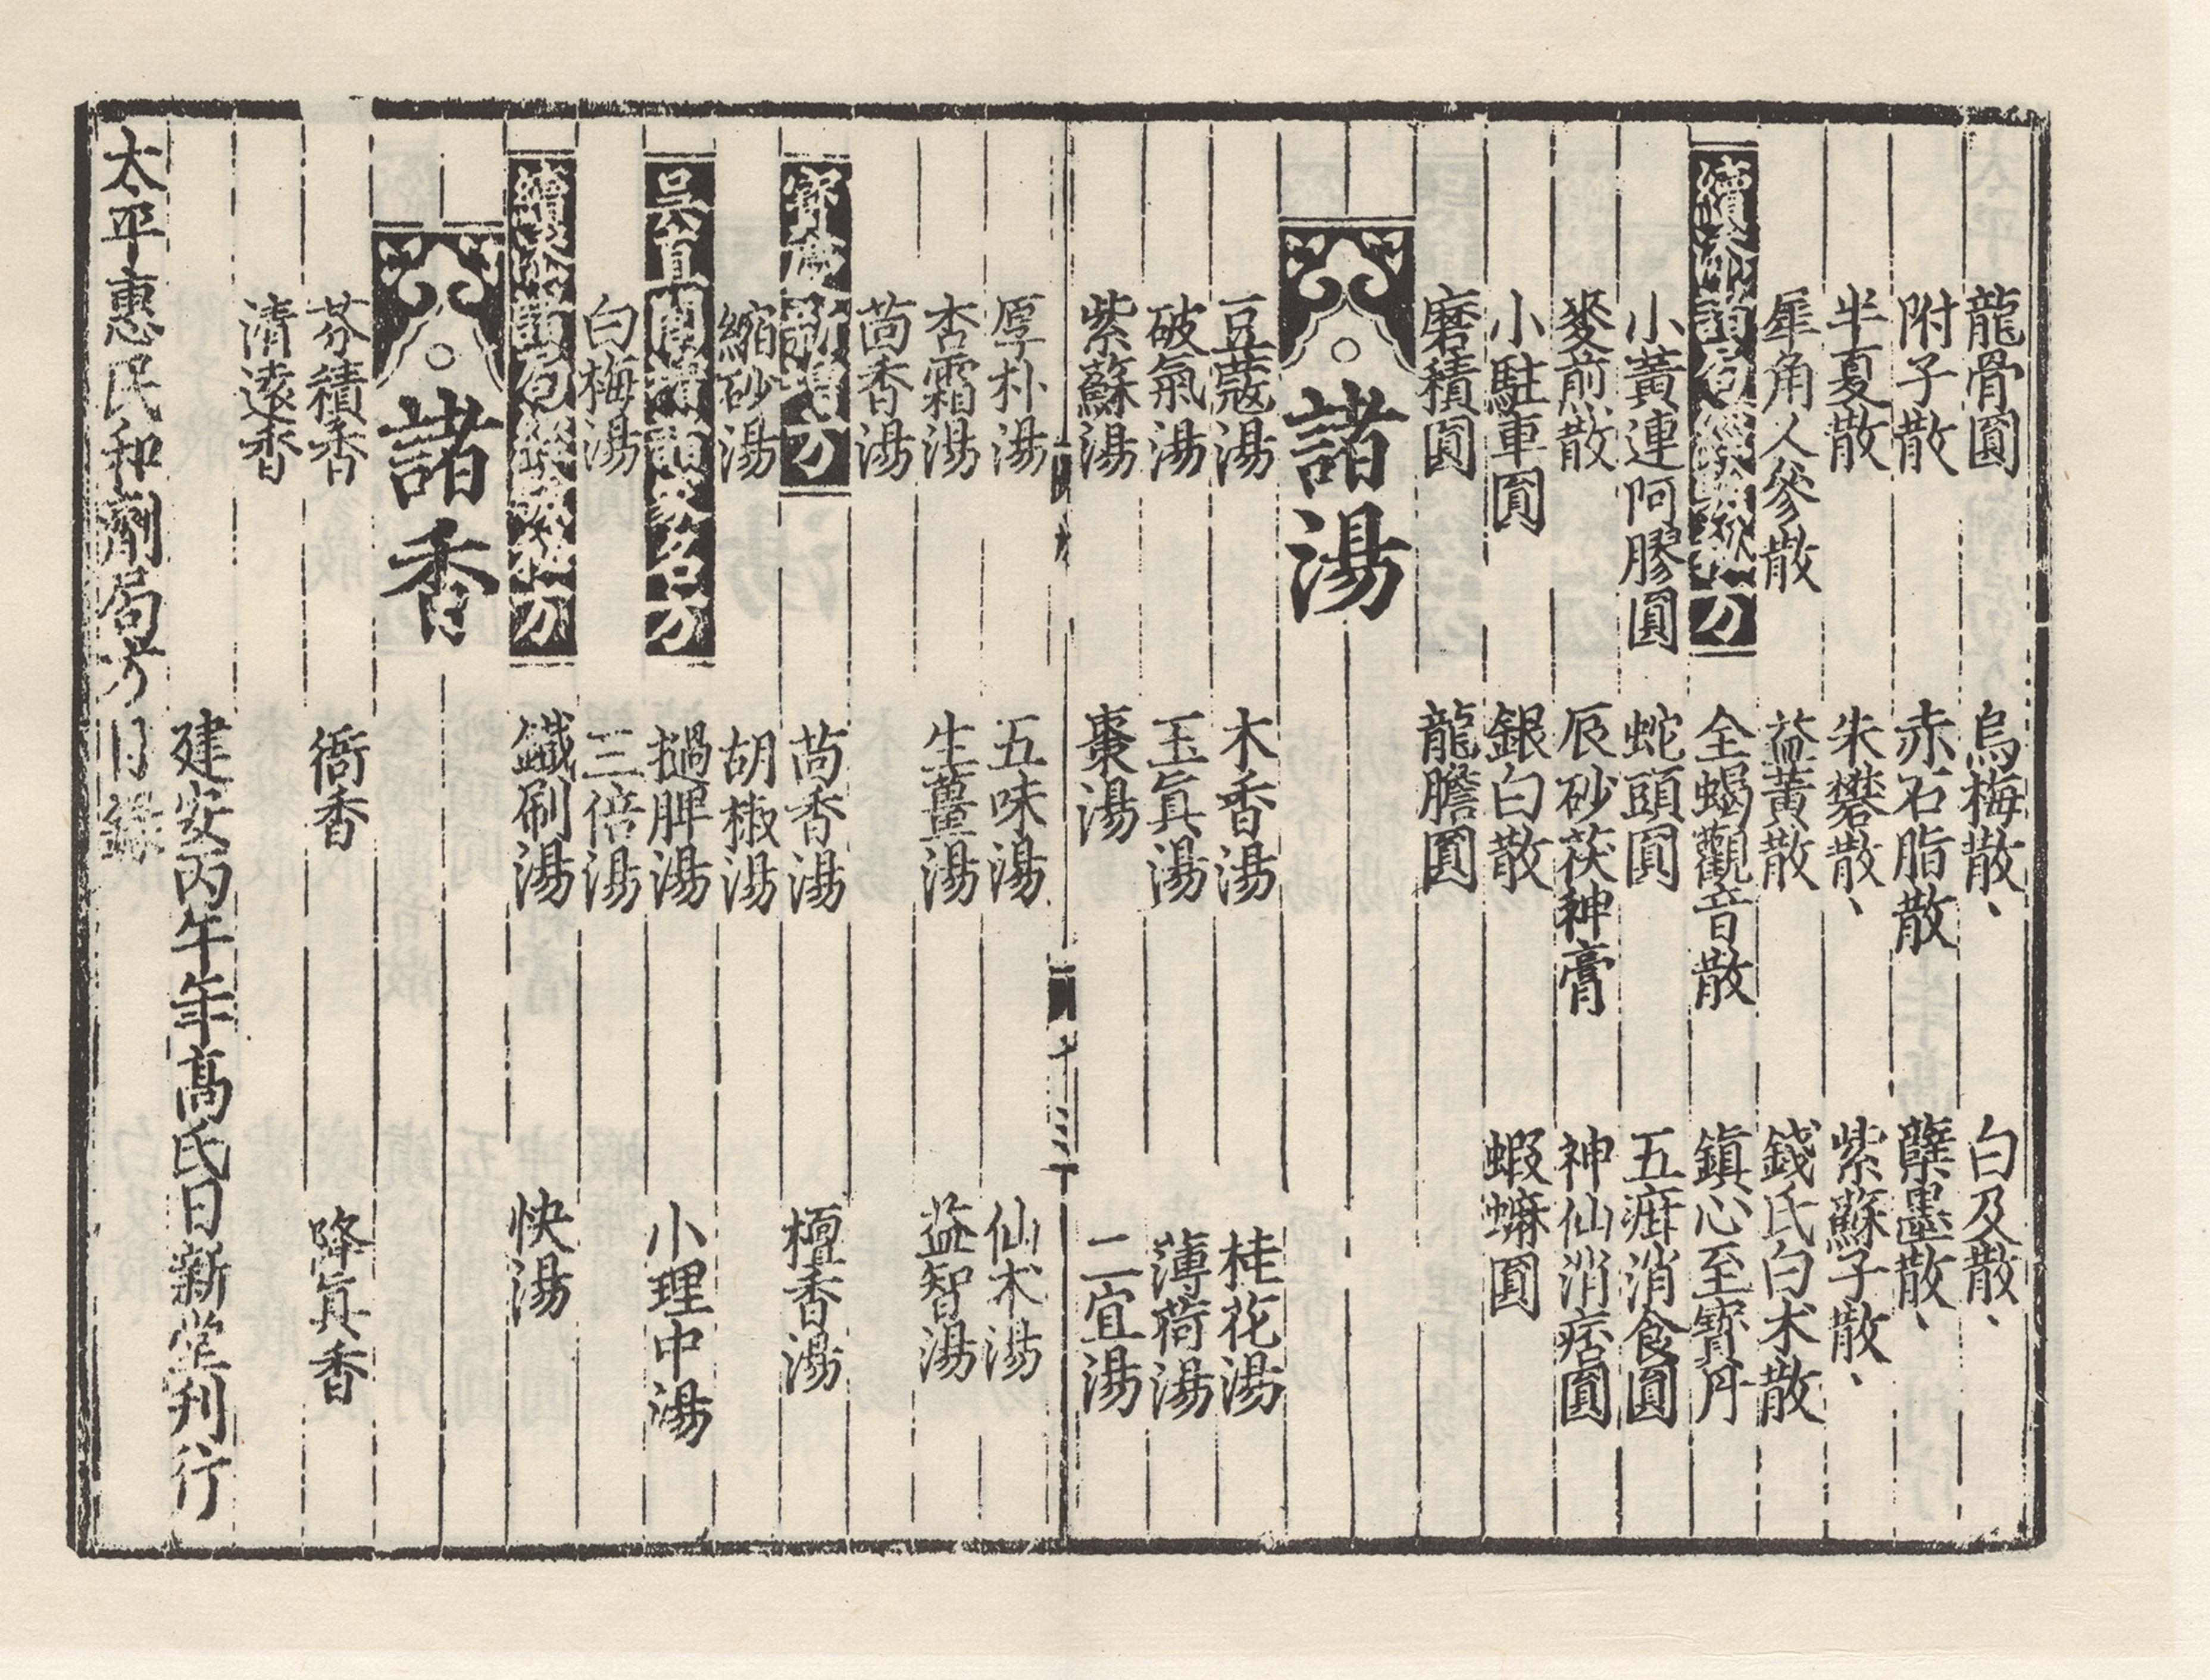 龍骨圓 烏梅散、 白及散、
附子散 赤石脂散 蘖墨散、
半夏散 朱礬散、 紫蘇子散、
犀角人參散 益黃散 錢氏白朮散
續添諸局經驗秘方 全蝎觀音散 鎮心至寶丹
小黃連阿膠圓 蛇頭圓 五疳消食圓
麥煎散 辰砂茯神膏 神仙消痞圓
小駐車圓 銀白散 蝦蟆圓
磨積圓 龍膽圓
諸湯
豆蔻湯 木香湯 桂花湯
破氣湯 玉眞湯 薄荷湯
紫蘇湯 棗湯 二宜湯
十三
厚朴湯 五味湯 仙朮湯
杏霜湯 生薑湯 益智湯
茴香湯
寶慶新增方 茴香湯 檀香湯
縮砂湯 胡椒湯
吳直閣增諸家名方 撾脾湯 小理中湯
白梅湯 三倍湯
續添諸局經驗秘方 鐵刷湯 快湯
諸香
芬積香 衙香 降眞香
清遠香
建安丙午年高氏日新堂刊行
太平惠民和劑局方目錄